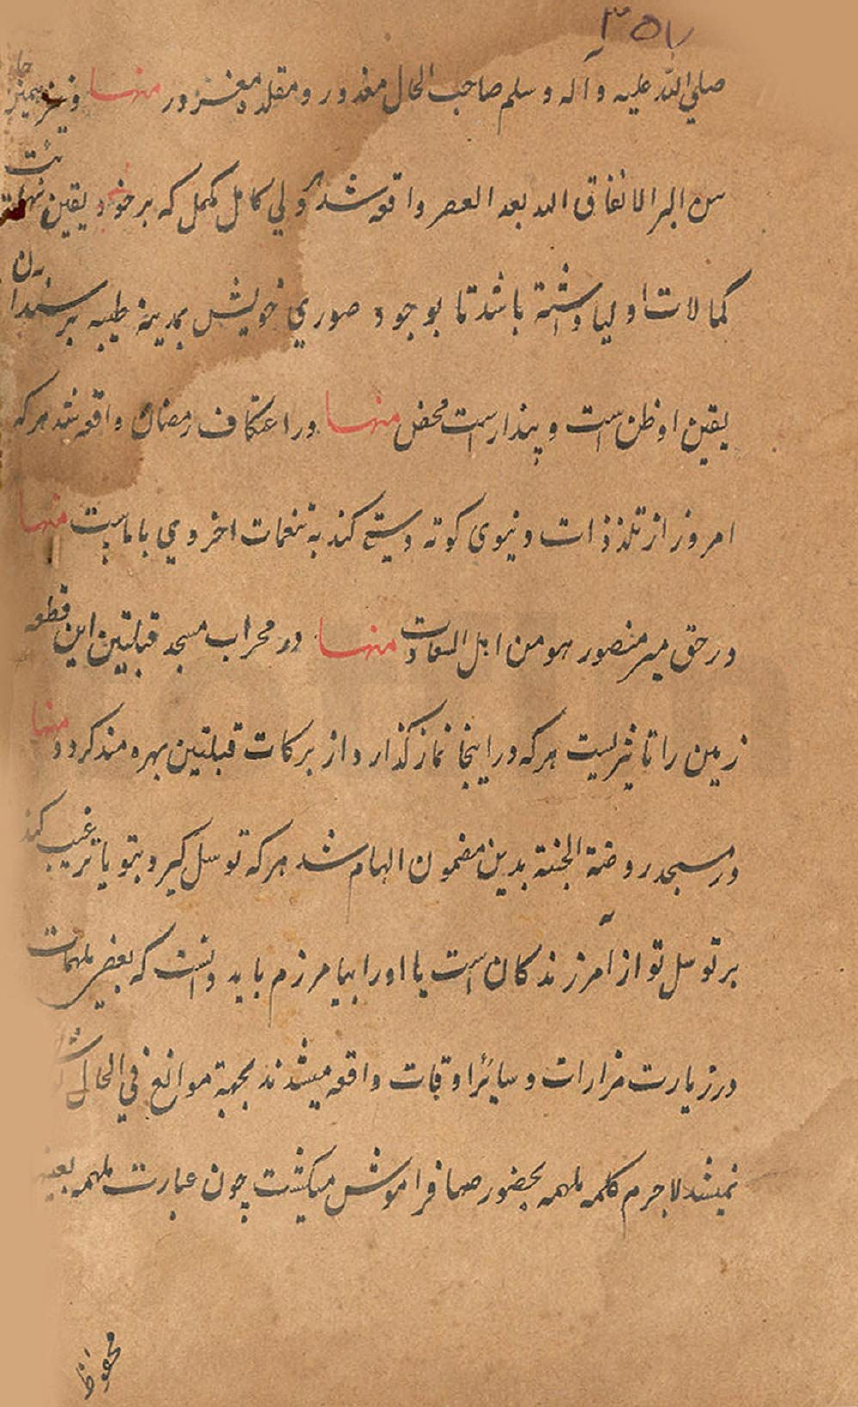 ۳۵۷
صلي الله عليه و آله و سلم صاحب الحال معذور و مقلده مغرور منها و نيز
من البر الانفاق لله بعد العصر واقعه شد ولي كامل مكمل كه بر خود يقين
كمالات اوليا داشته باشد تا بوجود صوري خويش بمدينه طيبه نرسد
يقين او ظن است و پندارست محض منها در اعتكاف رمضان واقعه شد هر كه
امروز از تلذذات دنيوى كوته دستي كند به تنعمات اخروي با ماست منها
در حق مير منصور هو من اهل السعادت منها در محراب مسجد قبلتين اين قطعه
زمين را تاثيريست هر كه در اينجا نماز گذارد از بركات قبلتين بهره مند كردد منها
در مسجد روضة الجنة بدين مضمون الهام شد هر كه توسل گيرد بتو يا ترغيب كند
بر توسل تو از آمرزندگان است يا او را بيامرزم بايد دانست كه بعضي ملهمات
در زيارت مزارات و ساير اوقات واقعه ميشدند بجهة موانع في الحال
نميشد لاجرم كلمه ملهمه بحضور صما فراموش ميگشت چون عبارت ملهمه بعينه
محفوظ